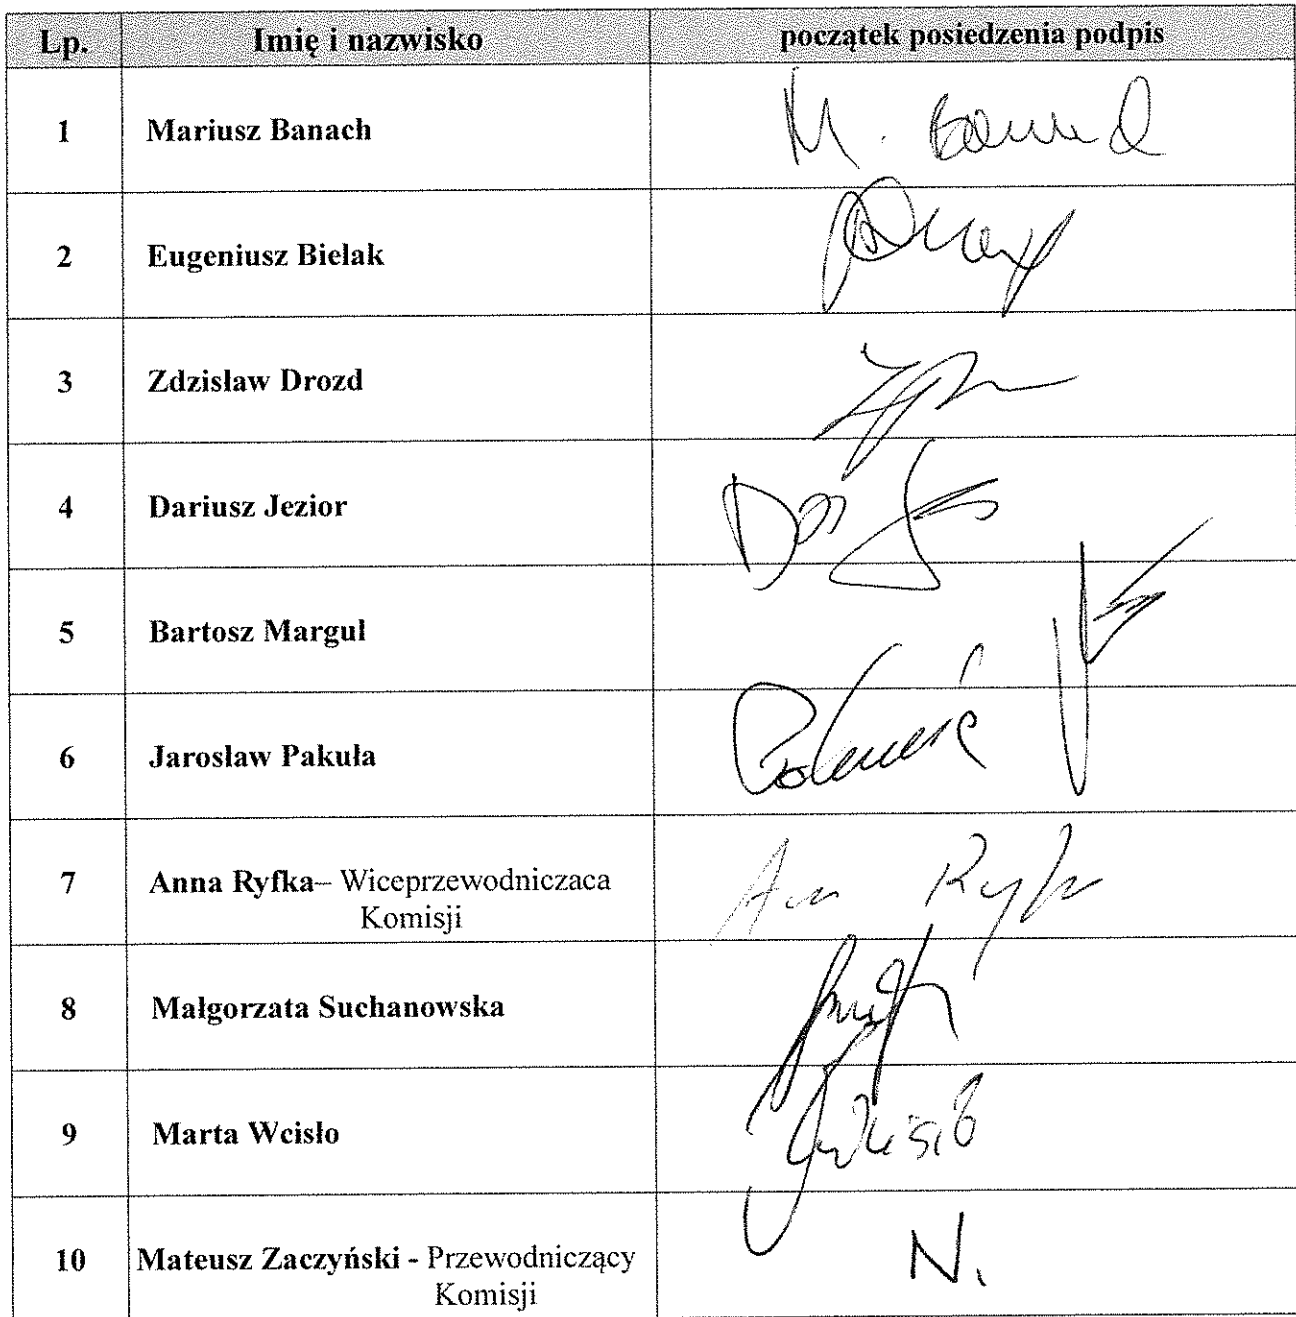 Lp. Imię i nazwisko początek posiedzenia podpis
1 Mariusz Banach M. Banach
2 Eugeniusz Bielak
3 Zdzisław Drozd
4 Dariusz Jezior
5 Bartosz Margul
6 Jarosław Pakuła
7 Anna Ryfka– Wiceprzewodniczaca
Komisji
8 Małgorzata Suchanowska
9 Marta Wcisło
10 Mateusz Zaczyński - Przewodniczący N.
Komisji